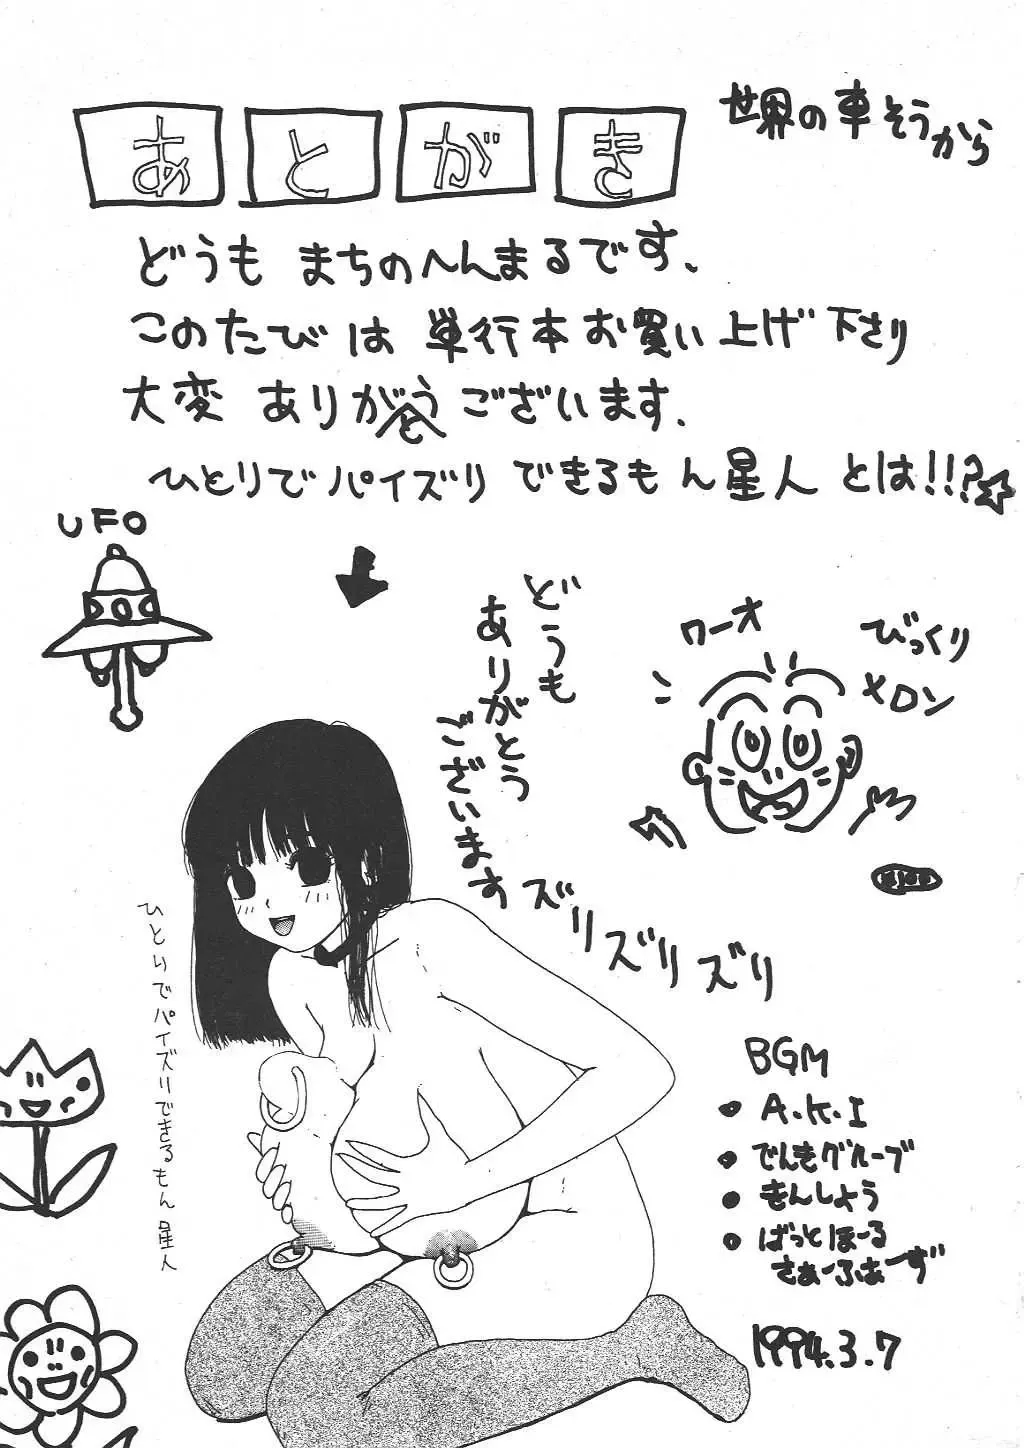 世界の車そうから
あとがき
どうも まちのへんまるです、
このたびは 単行本お買い上げ下さり
大変 ありがとうございます、
ひとりでパイズリできるもん星人 とは!!?
UFO
どうも
ありがとう
ございます
ワーオ
びっくり
メロン
ズリズリズリ
ひとりでパイズリできるもん星人
BGM
・A.K.I
・でんきグループ
・きんしょう
・ばっとほーる
さぁーふぁーず
1994.3.7